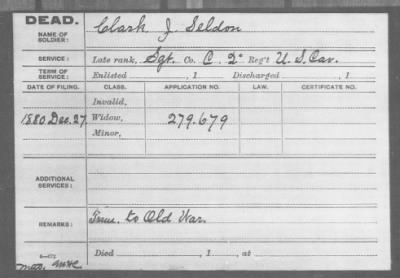 DEAD.
NAME OF SOLDIER: Clark J. Seldon
SERVICE: Late rank, Sgt. Co. C. 2" Reg't U. S. Cav.
TERM OF SERVICE: Enlisted , 1 Discharged , 1
DATE OF FILING. CLASS. APPLICATION NO. LAW. CERTIFICATE NO.
Invalid,
1880 Dec. 27. Widow, 279.679
Minor,
ADDITIONAL SERVICES:
REMARKS: to Old War.
Died , 1 , at